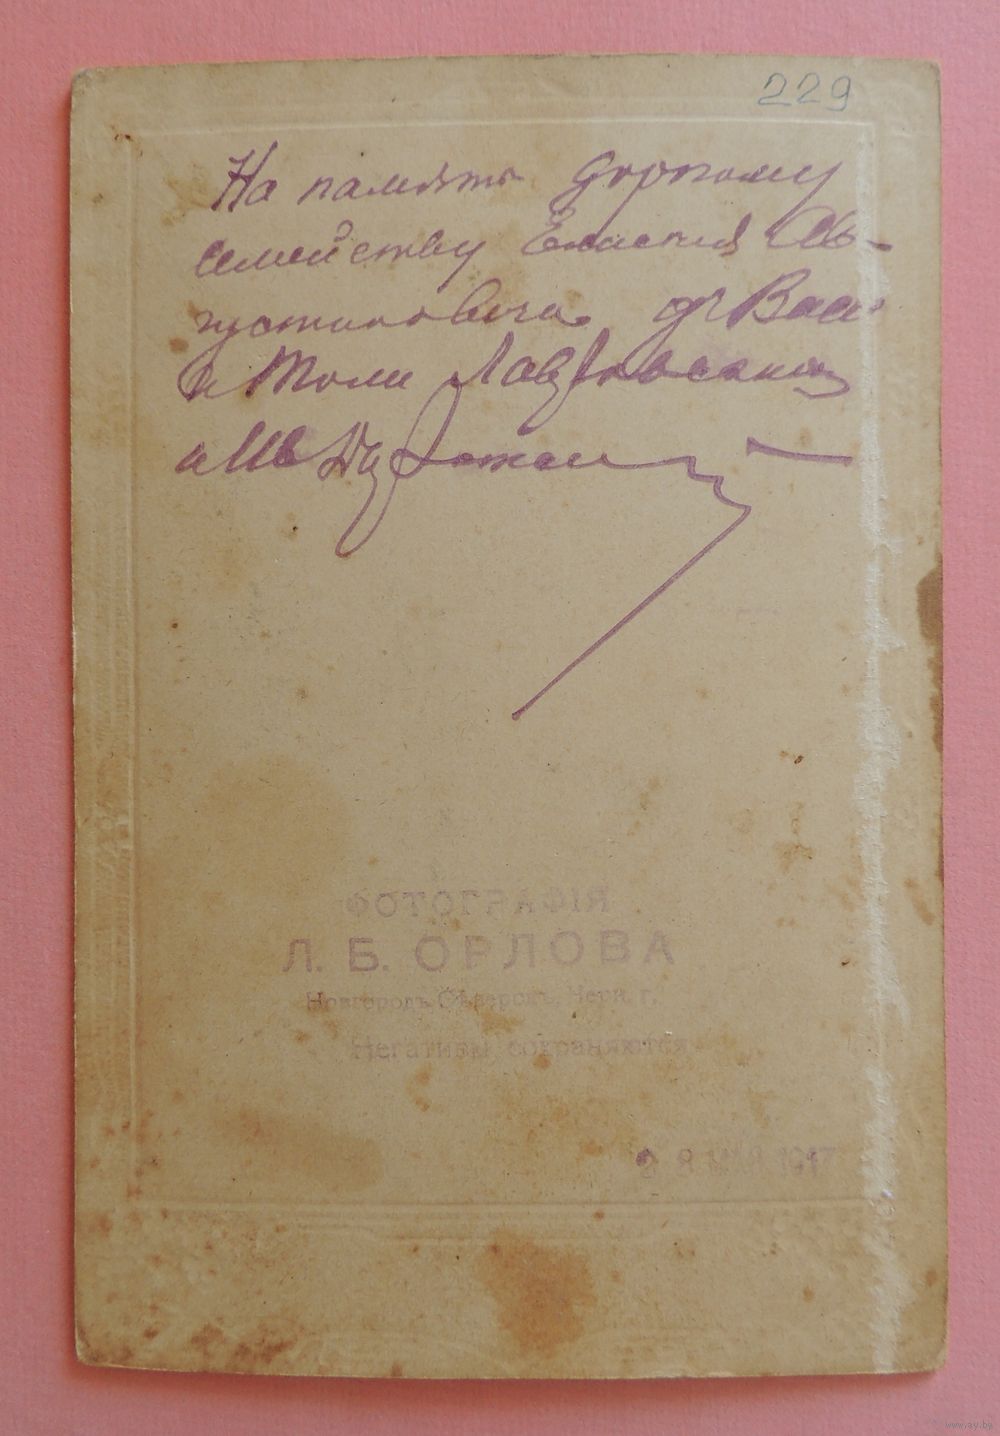 229
На память дорогому
семейству Евгения Ав-
густиновича
и Толи Лавровским
ФОТОГРАФІЯ
Л. Б. ОРЛОВА
Новгородъ Сѣверскъ, Черн. г.
Негативы сохраняются
28 МАЯ 1917
www.ay.by